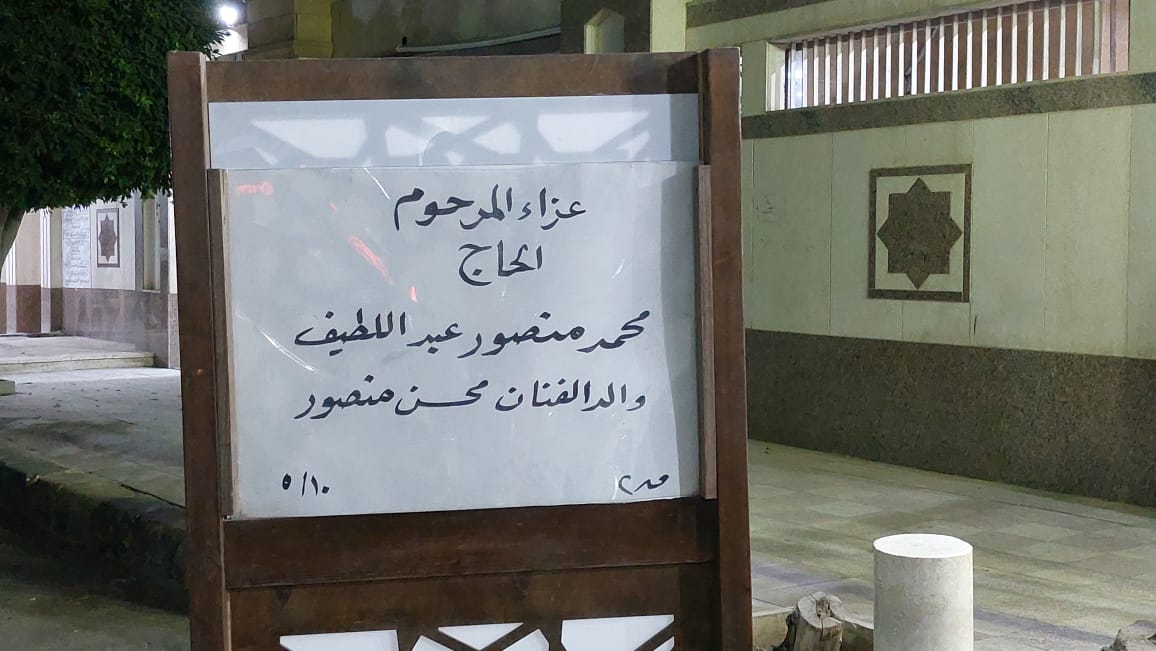 عزاء المرحوم
الحاج
محمد منصور عبد اللطيف
والد الفنان محسن منصور
٥/١٠